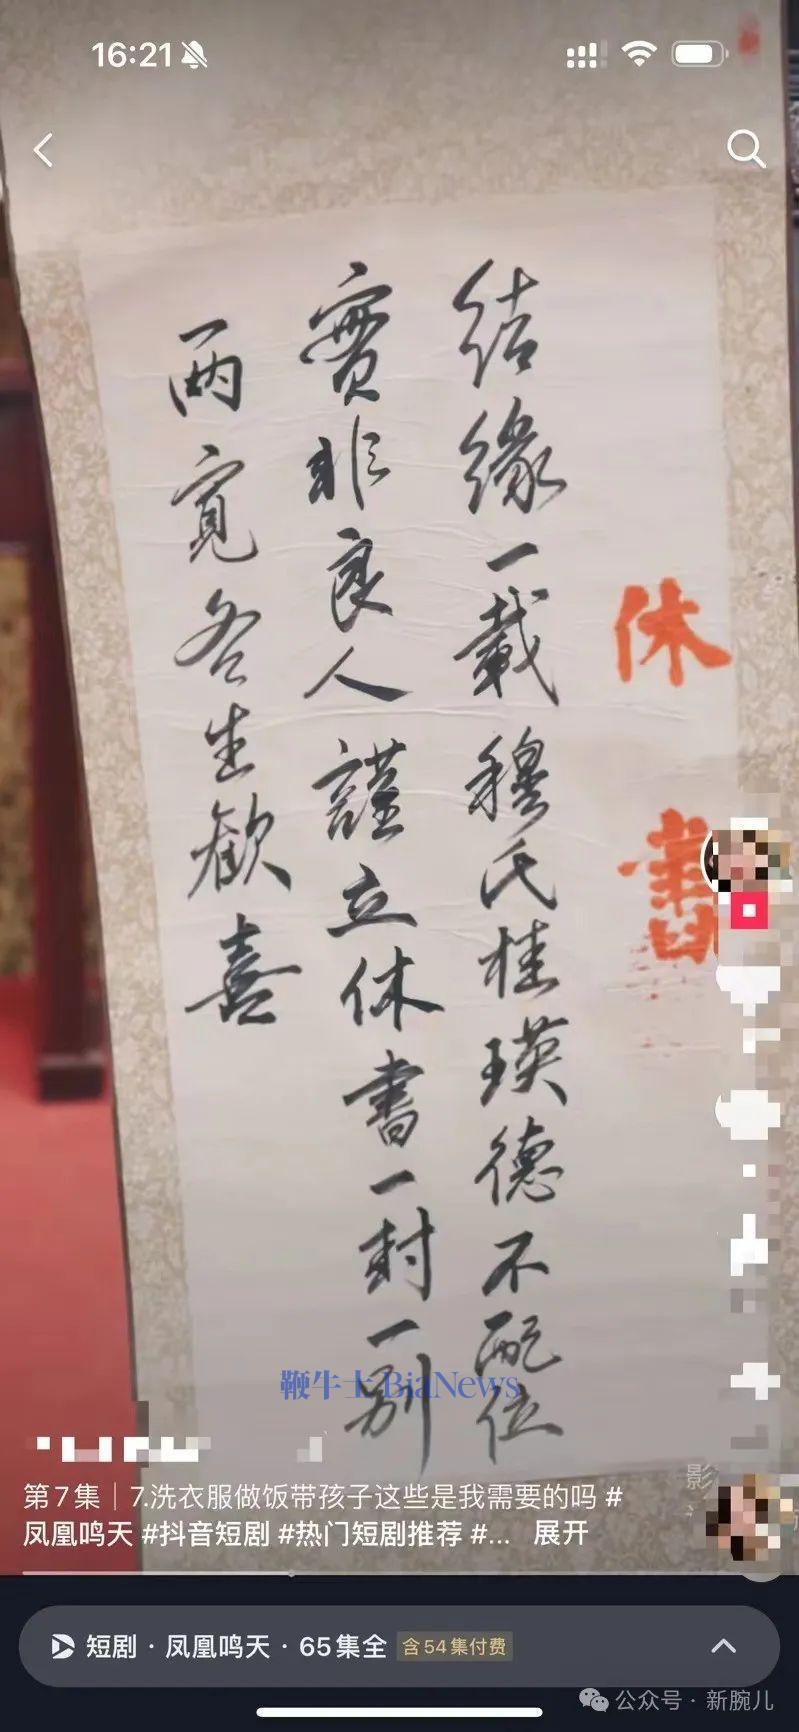 16:21
休書
结缘一載穆氏桂瑛德不配位
實非良人謹立休書一封一别
两寬各生歡喜
鞭牛士 BiaNews
影
第7集｜7.洗衣服做饭带孩子这些是我需要的吗 #
凤凰鸣天 #抖音短剧 #热门短剧推荐 #... 展开
短剧 · 凤凰鸣天 · 65集全 含54集付费
公众号 · 新腕儿